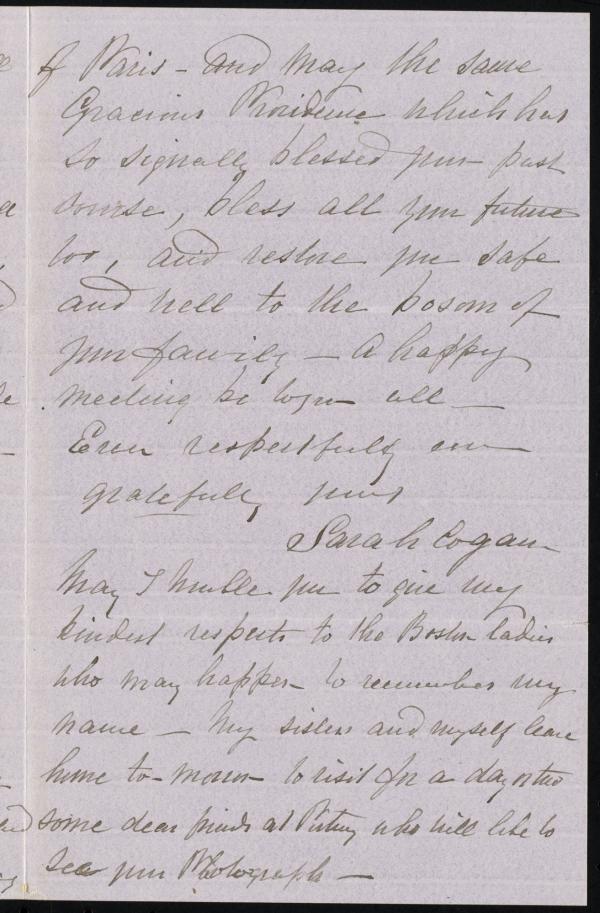 of Paris - and may the same
Gracious Providence which has
so signally blessed your past
course, bless all your future
too, and restore you safe
and well to the bosom of
your family - A happy
meeting be to you all -
Ever respectfully and
gratefully yours
Sarah Cogan
May I trouble you to give my
kindest respects to the Boston ladies
who may happen to remember my
name - My sisters and myself leave
home to-morrow to visit for a day or two
some dear friends at Putney who will like to
see your Photograph -